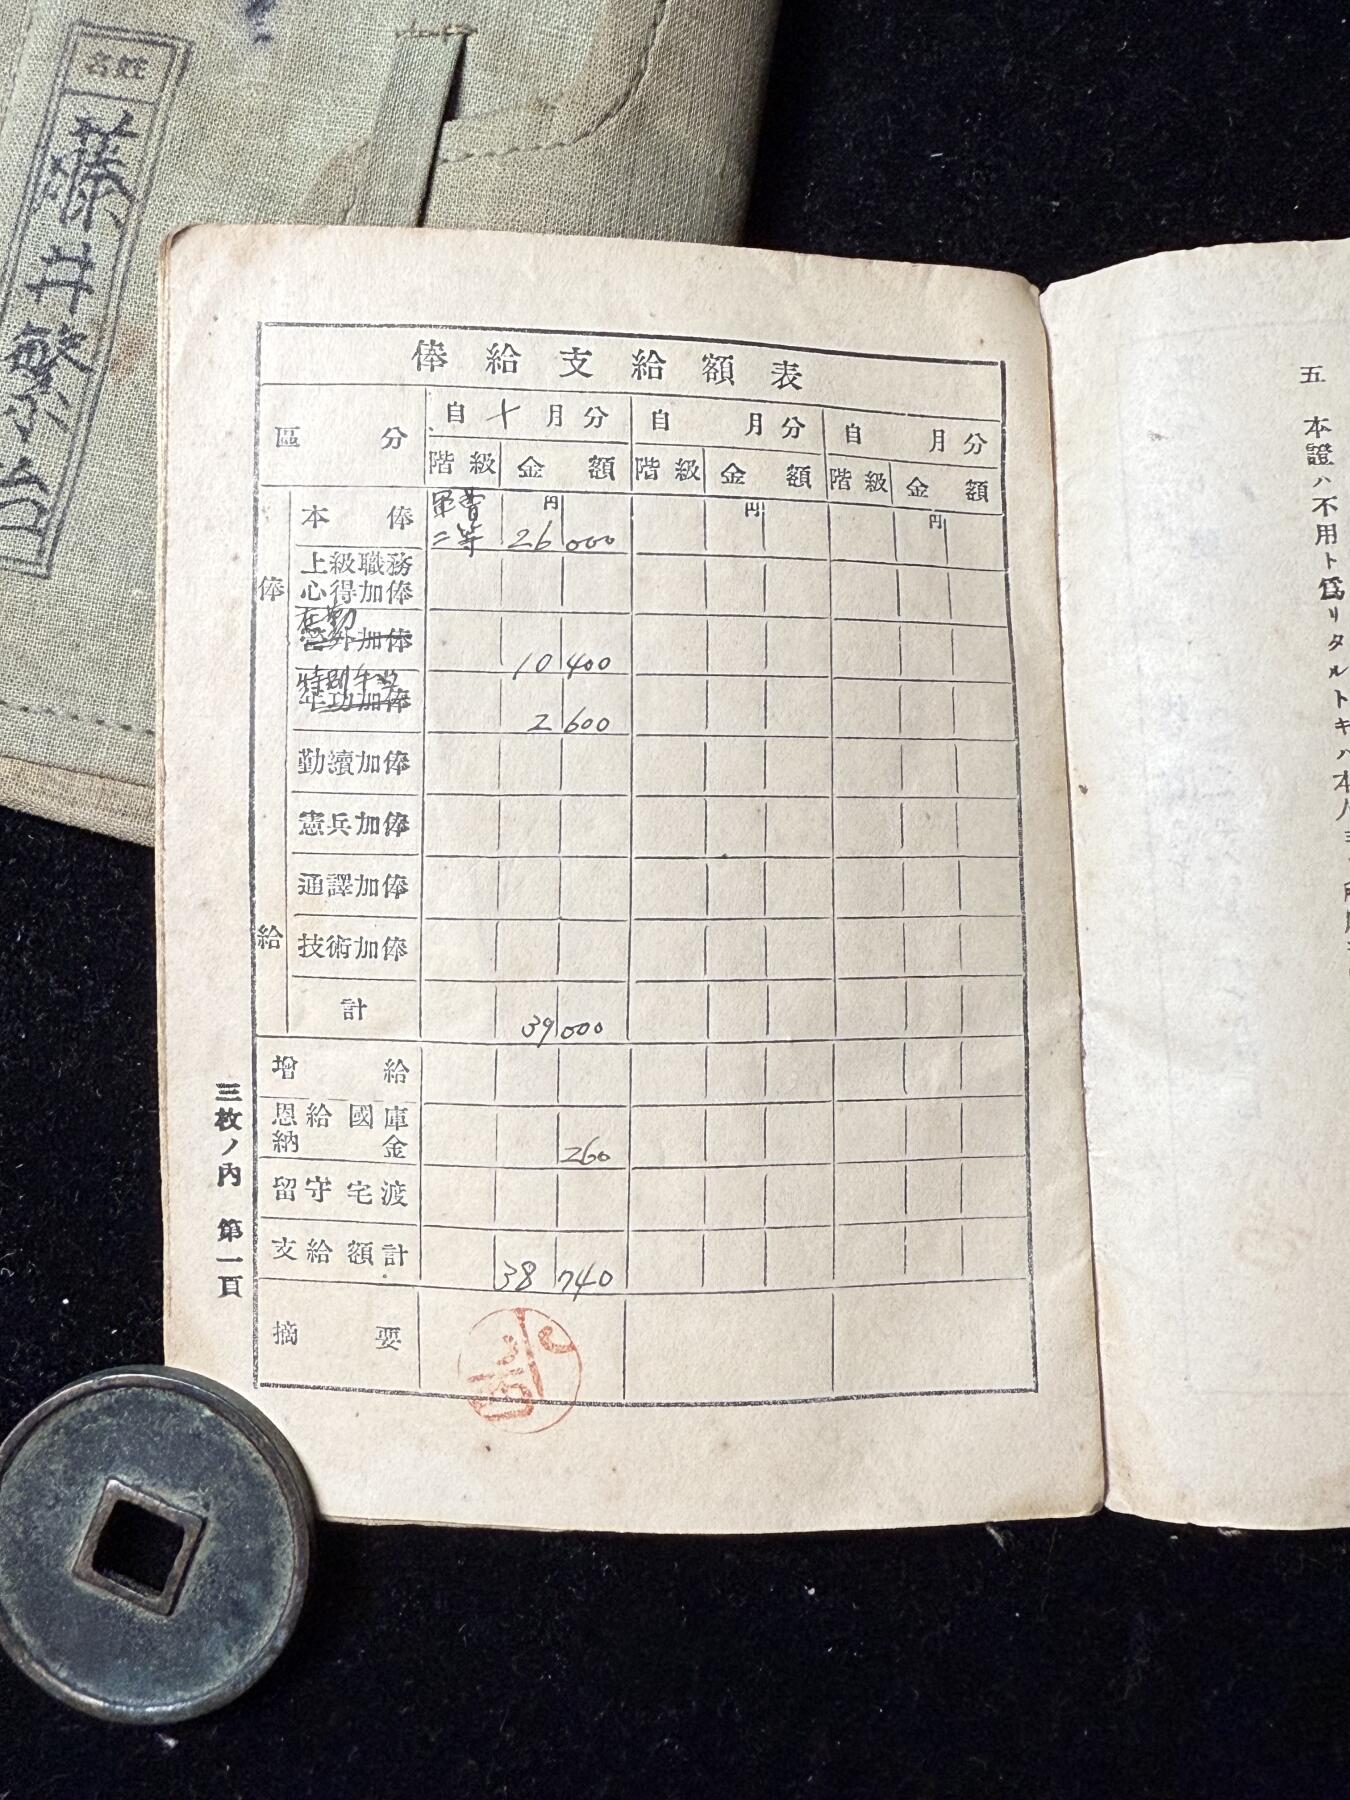 姓名
藤井繁治
俸給支給額表
區分 自十月分 自 月分 自 月分
階級 金額 階級 金額 階級 金額
俸給
本俸 軍曹 二等 円 26 000 円 円
上級職務心得加俸
在勤
營外加俸 10 400
特別年功
年功加俸 2 600
勤續加俸
憲兵加俸
通譯加俸
技術加俸
計 39 000
增給
恩給國庫納金 260
留守宅渡
支給額計 38 740
摘要
三枚ノ內 第一頁
五 本證ハ不用ト爲リタルトキハ本人